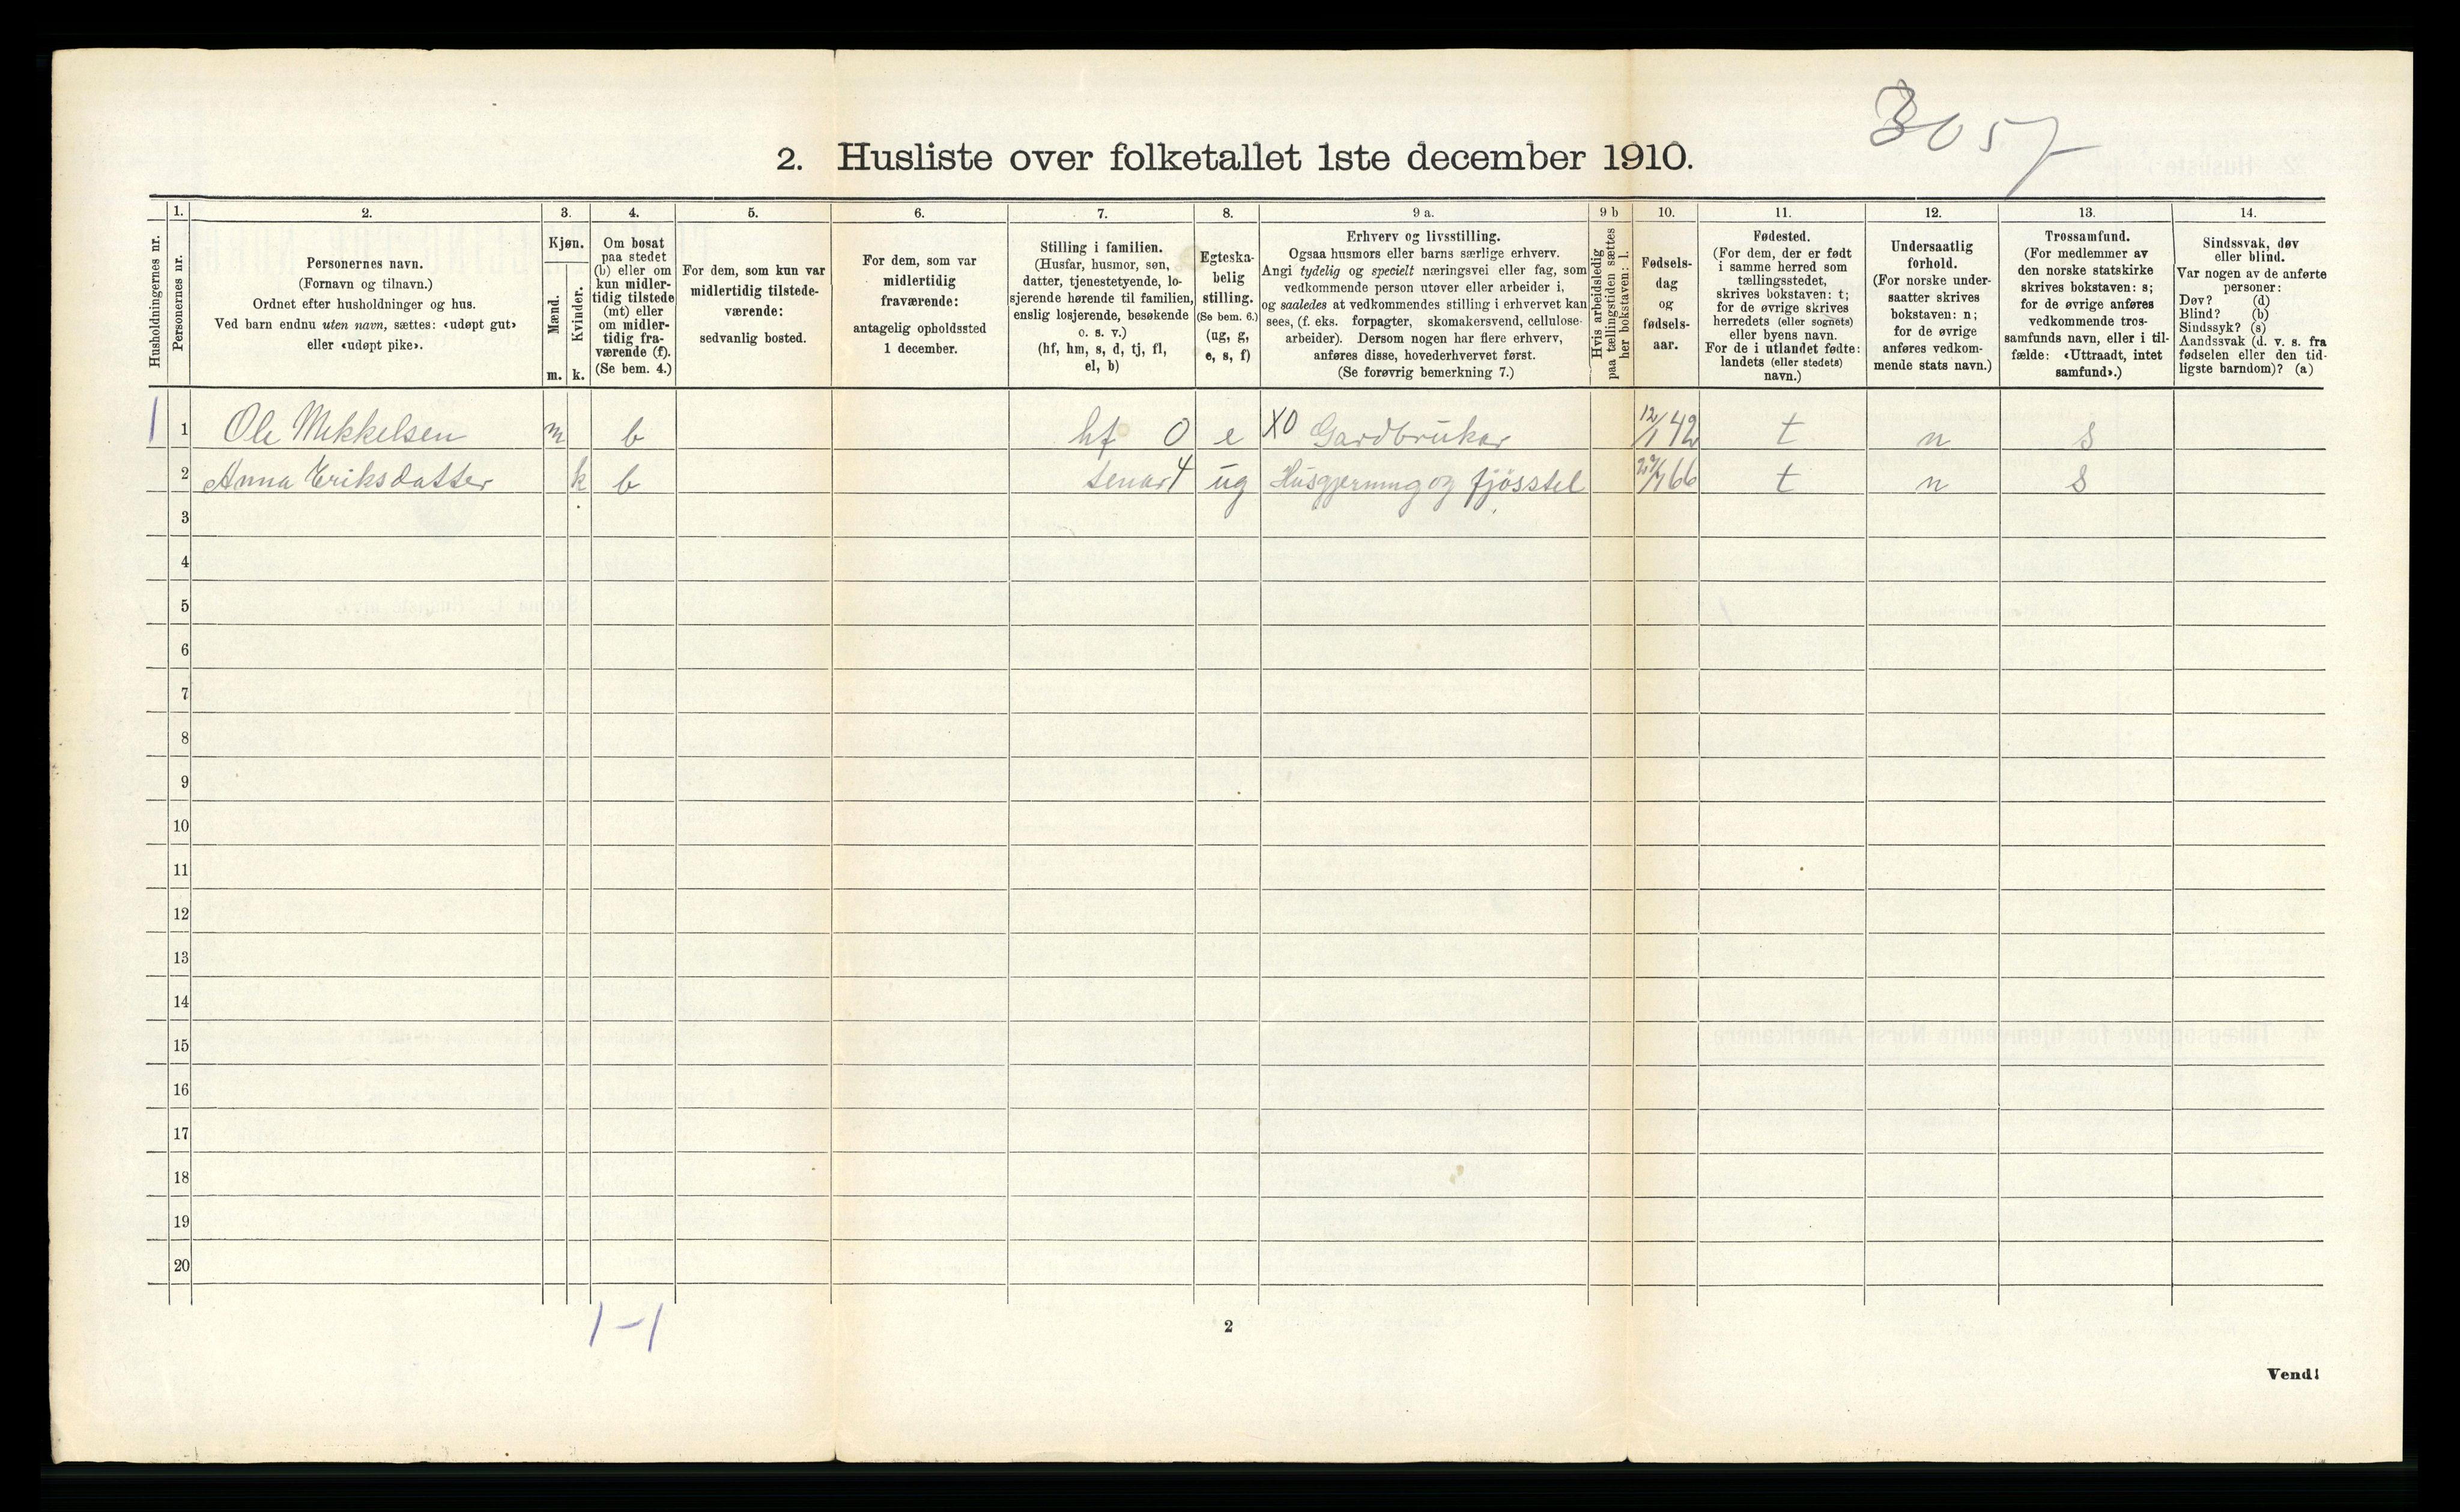 3057
2. Husliste over folketallet 1ste december 1910.
Husholdningernes nr.
1.
Personernes nr.
2.
Personernes navn.
(Fornavn og tilnavn.)
Ordnet efter husholdninger og hus.
Ved barn endnu uten navn, sættes: «udøpt gut»
eller «udøpt pike».
3.
Kjøn.
Mænd.
Kvinder.
m. k.
4.
Om bosat
paa stedet
(b) eller om
kun midler-
tidig tilstede
(mt) eller
om midler-
tidig fra-
værende (f).
(Se bem. 4.)
5.
For dem, som kun var
midlertidig tilstede-
værende:
sedvanlig bosted.
6.
For dem, som var
midlertidig
fraværende:
antagelig opholdssted
1 december.
7.
Stilling i familien.
(Husfar, husmor, søn,
datter, tjenestetyende, lo-
sjerende hørende til familien,
enslig losjerende, besøkende
o. s. v.)
(hf, hm, s, d, tj, fl,
el, b)
8.
Egteska-
belig
stilling.
(Se bem. 6.)
(ug, g,
e, s, f)
9 a.
Erhverv og livsstilling.
Ogsaa husmors eller barns særlige erhverv.
Angi tydelig og specielt næringsvei eller fag, som
vedkommende person utøver eller arbeider i,
og saaledes at vedkommendes stilling i erhvervet kan
sees, (f. eks. forpagter, skomakersvend, cellulose-
arbeider). Dersom nogen har flere erhverv,
anføres disse, hovederhvervet først.
(Se forøvrig bemerkning 7.)
9 b
Hvis arbeidsledig
paa tællingstiden sættes
her bokstaven: l.
10.
Fødsels-
dag
og
fødsels-
aar.
11.
Fødested.
(For dem, der er født
i samme herred som
tællingsstedet,
skrives bokstaven: t;
for de øvrige skrives
herredets (eller sognets)
eller byens navn.
For de i utlandet fødte:
landets (eller stedets)
navn.)
12.
Undersaatlig
forhold.
(For norske under-
saatter skrives
bokstaven: n;
for de øvrige
anføres vedkom-
mende stats navn.)
13.
Trossamfund.
(For medlemmer av
den norske statskirke
skrives bokstaven: s;
for de øvrige anføres
vedkommende tros-
samfunds navn, eller i til-
fælde: «Uttraadt, intet
samfund».)
14.
Sindssvak, døv
eller blind.
Var nogen av de anførte
personer:
Døv? (d)
Blind? (b)
Sindssyk? (s)
Aandssvak (d. v. s. fra
fødselen eller den tid-
ligste barndom)? (a)
1 1 Ole Mekkelsen m b hf 0 e X0 Gardbrukar 12/1 42 t n s
2 Anna Eriksdatter k b tenar 4 ug Husgjerning og fjösstel 66 t n s
3
4
5
6
7
8
9
10
11
12
13
14
15
16
17
18
19
20
1-1
2
Vend!